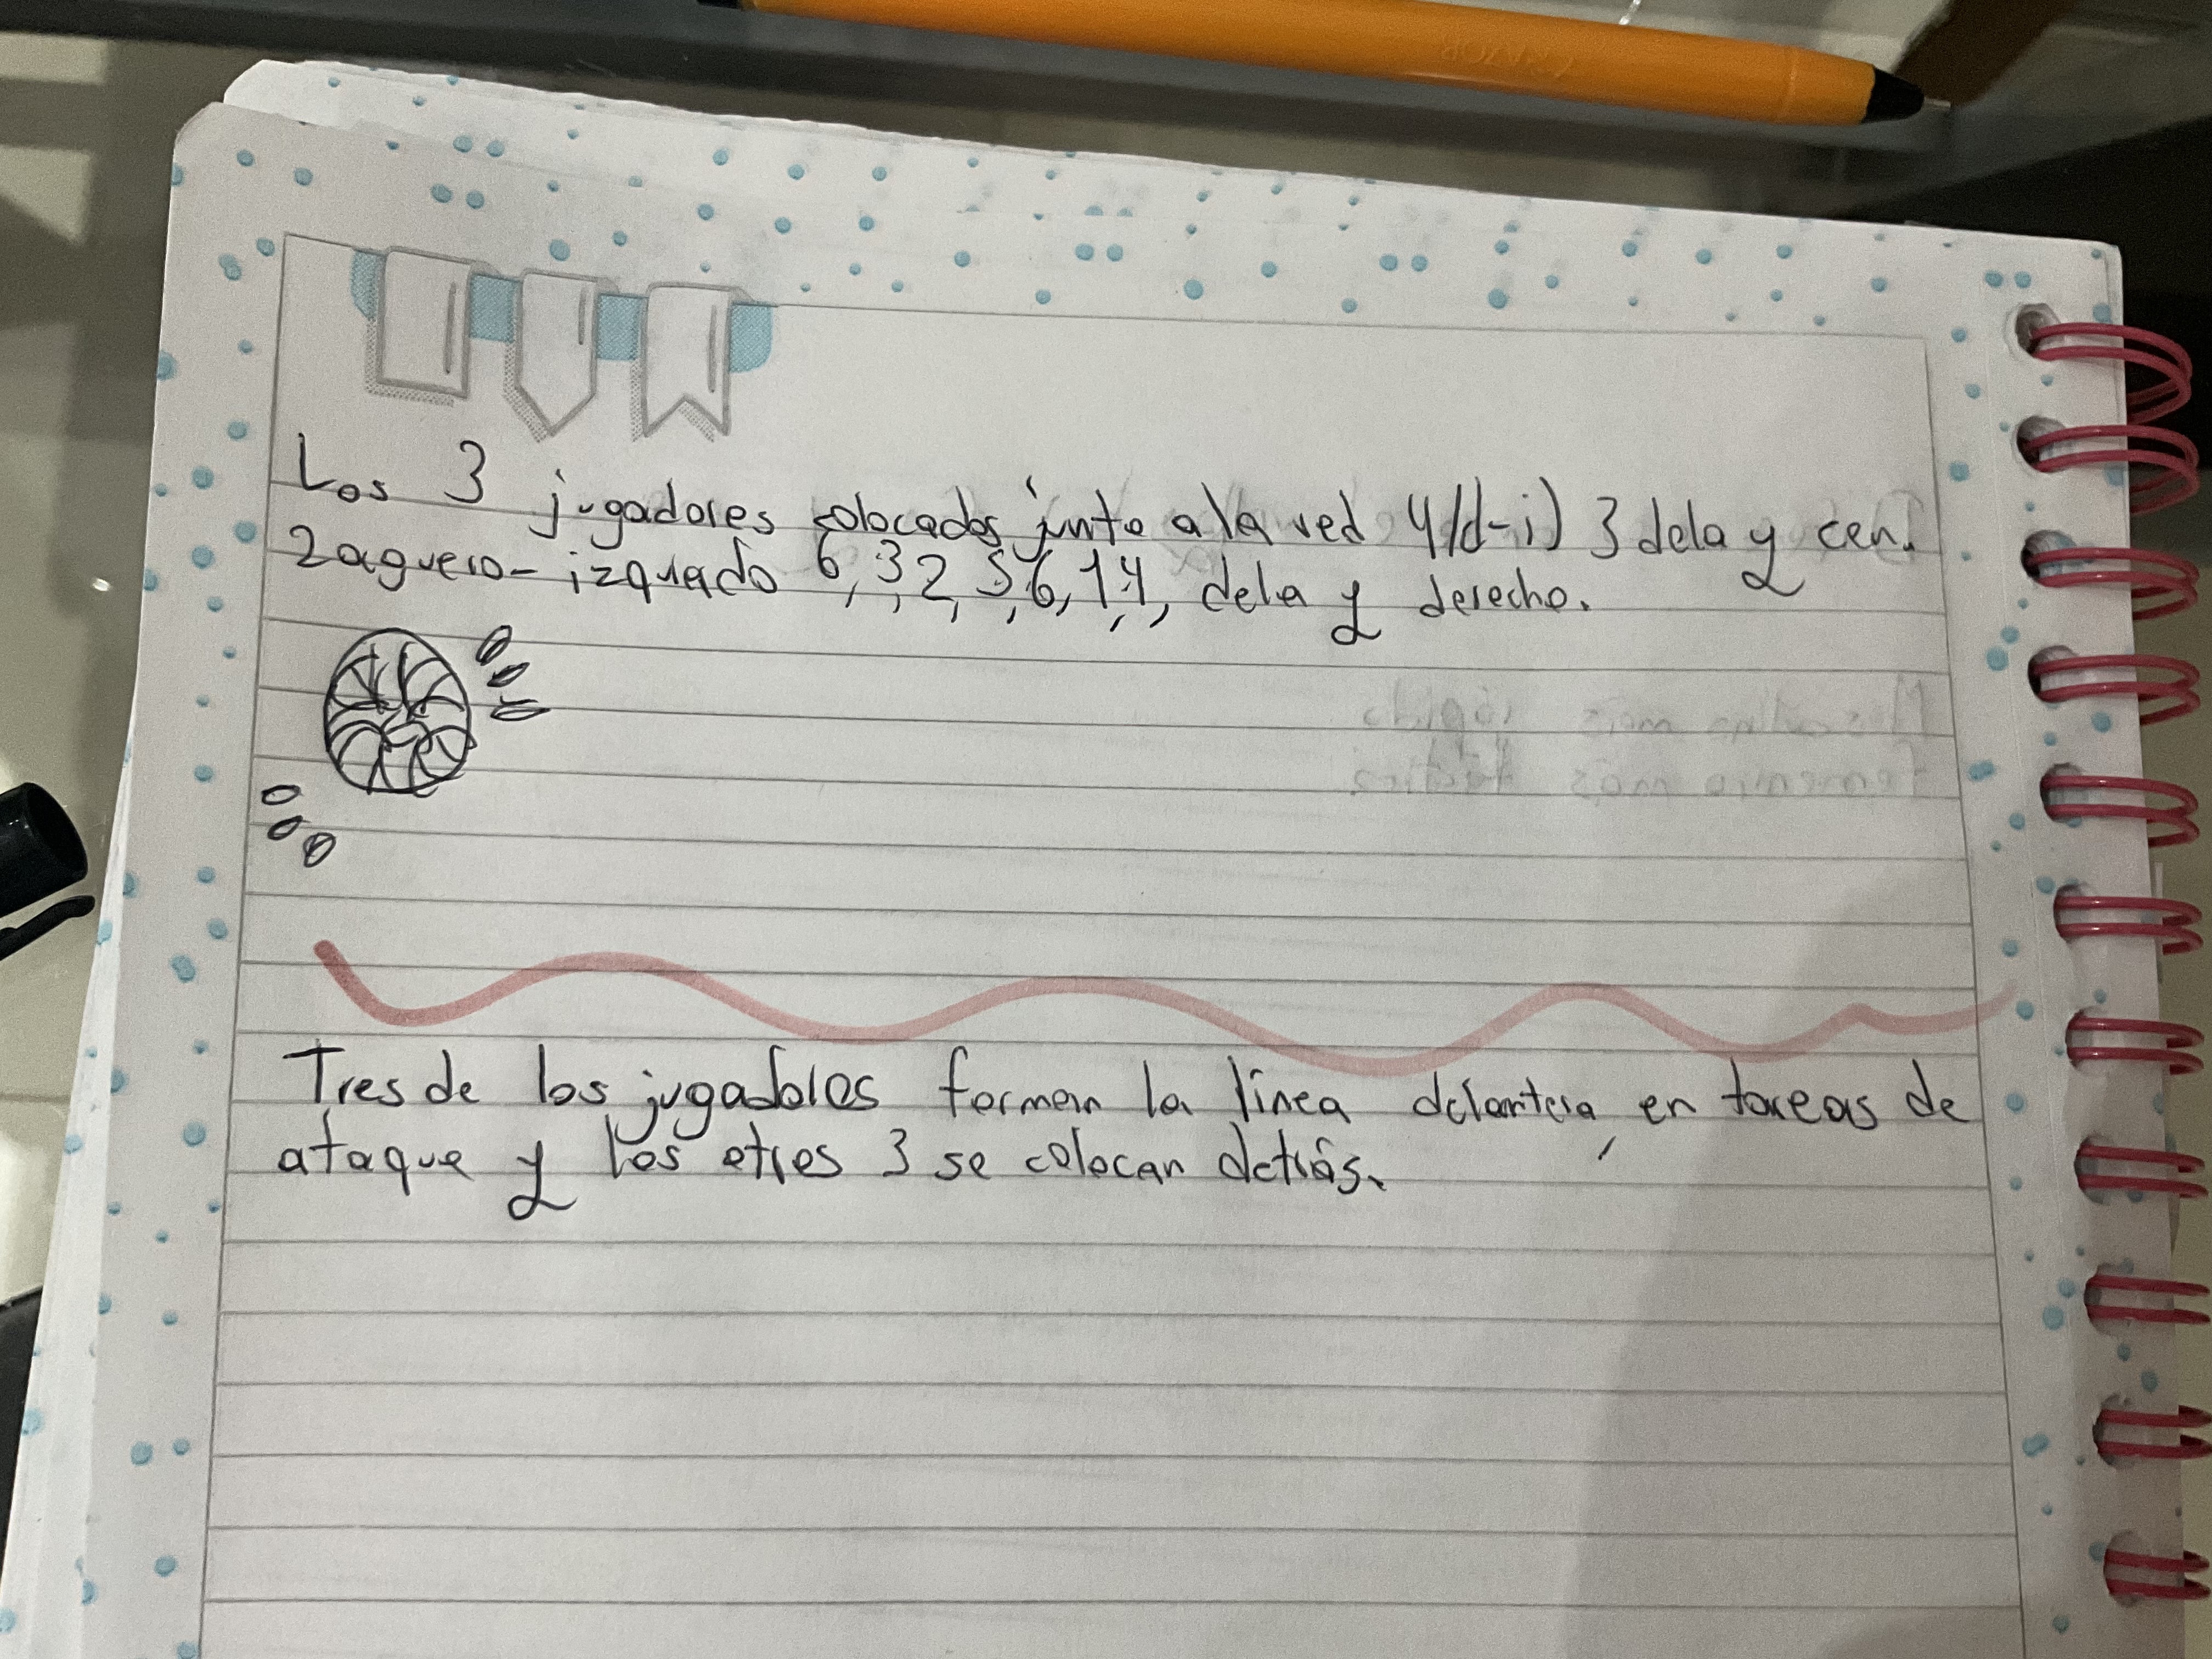 Los 3 jugadores colocados junto a la red 4/d-i) 3 dela y cen.
Zaguero-izquiedo 6, 3, 2, 5, 6, 1, 4, dela y derecho.
Tres de los jugadores forman la línea delantera, en tareas de
ataque y los otros 3 se colocan detrás.